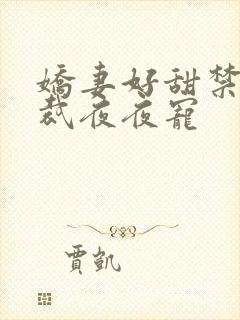 嬌妻好甜禁
裁夜夜寵
賈凱